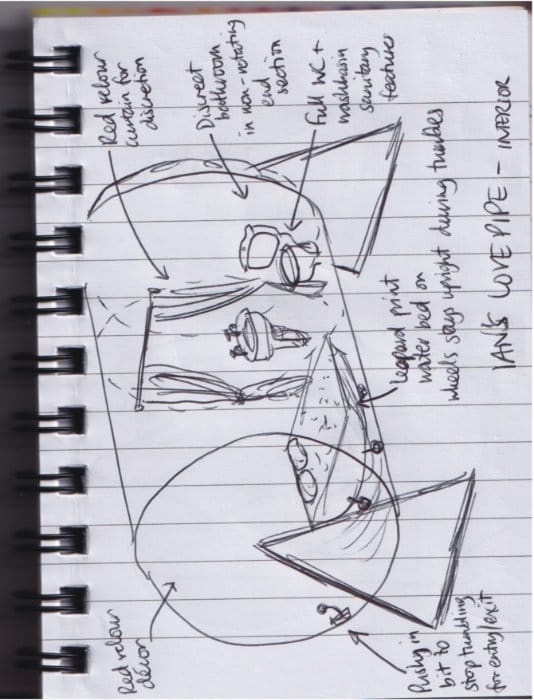 Red velour
curtain for
discretion
Discreet
bathroom
in non-rotating
end
section
Full WC +
washbasin
sanitary
features
Red velour
décor
Leopard print
water bed on
wheels stays upright during tumbles
Pushy in
bit to
stop tumbling
for entry/exit
IAN'S LOVE PIPE - INTERIOR